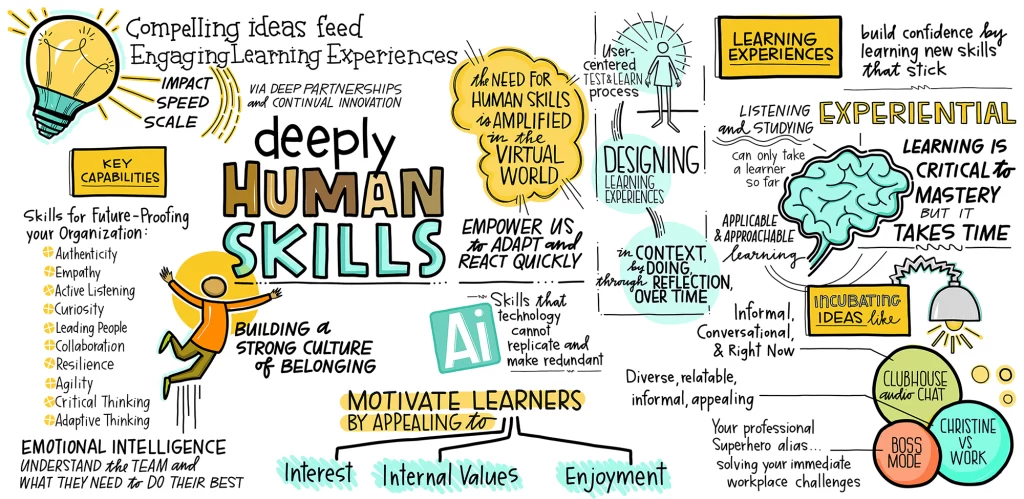 Compelling ideas feed
Engaging Learning Experiences
IMPACT
SPEED
SCALE
VIA DEEP PARTNERSHIPS
and CONTINUAL INNOVATION
deeply
HUMAN
SKILLS
KEY
CAPABILITIES
Skills for Future-Proofing
your Organization:
Authenticity
Empathy
Active Listening
Curiosity
Leading People
Collaboration
Resilience
Agility
Critical Thinking
Adaptive Thinking
EMOTIONAL INTELLIGENCE
UNDERSTAND the TEAM and
WHAT THEY NEED to DO THEIR BEST
BUILDING A
STRONG CULTURE
of BELONGING
the NEED FOR
HUMAN SKILLS
is AMPLIFIED
in the
VIRTUAL
WORLD
EMPOWER US
to ADAPT and
REACT QUICKLY
Ai
Skills that
technology
cannot
replicate and
make redundant
MOTIVATE LEARNERS
BY APPEALING to
Interest
Internal Values
Enjoyment
User-
centered
TEST & LEARN
process
DESIGNING
LEARNING
EXPERIENCES
in CONTEXT,
by DOING,
through REFLECTION,
OVER TIME
LEARNING
EXPERIENCES
build confidence by
learning new skills
that stick
LISTENING
and STUDYING
can only take
a learner
so far
EXPERIENTIAL
LEARNING IS
CRITICAL to
MASTERY
BUT IT
TAKES TIME
APPLICABLE
& APPROACHABLE
learning
INCUBATING
IDEAS like
Informal,
Conversational,
& Right Now
CLUBHOUSE
audio CHAT
Diverse, relatable,
informal, appealing
CHRISTINE
VS
WORK
Your professional
Superhero alias...
solving your immediate
workplace challenges
BOSS
MODE